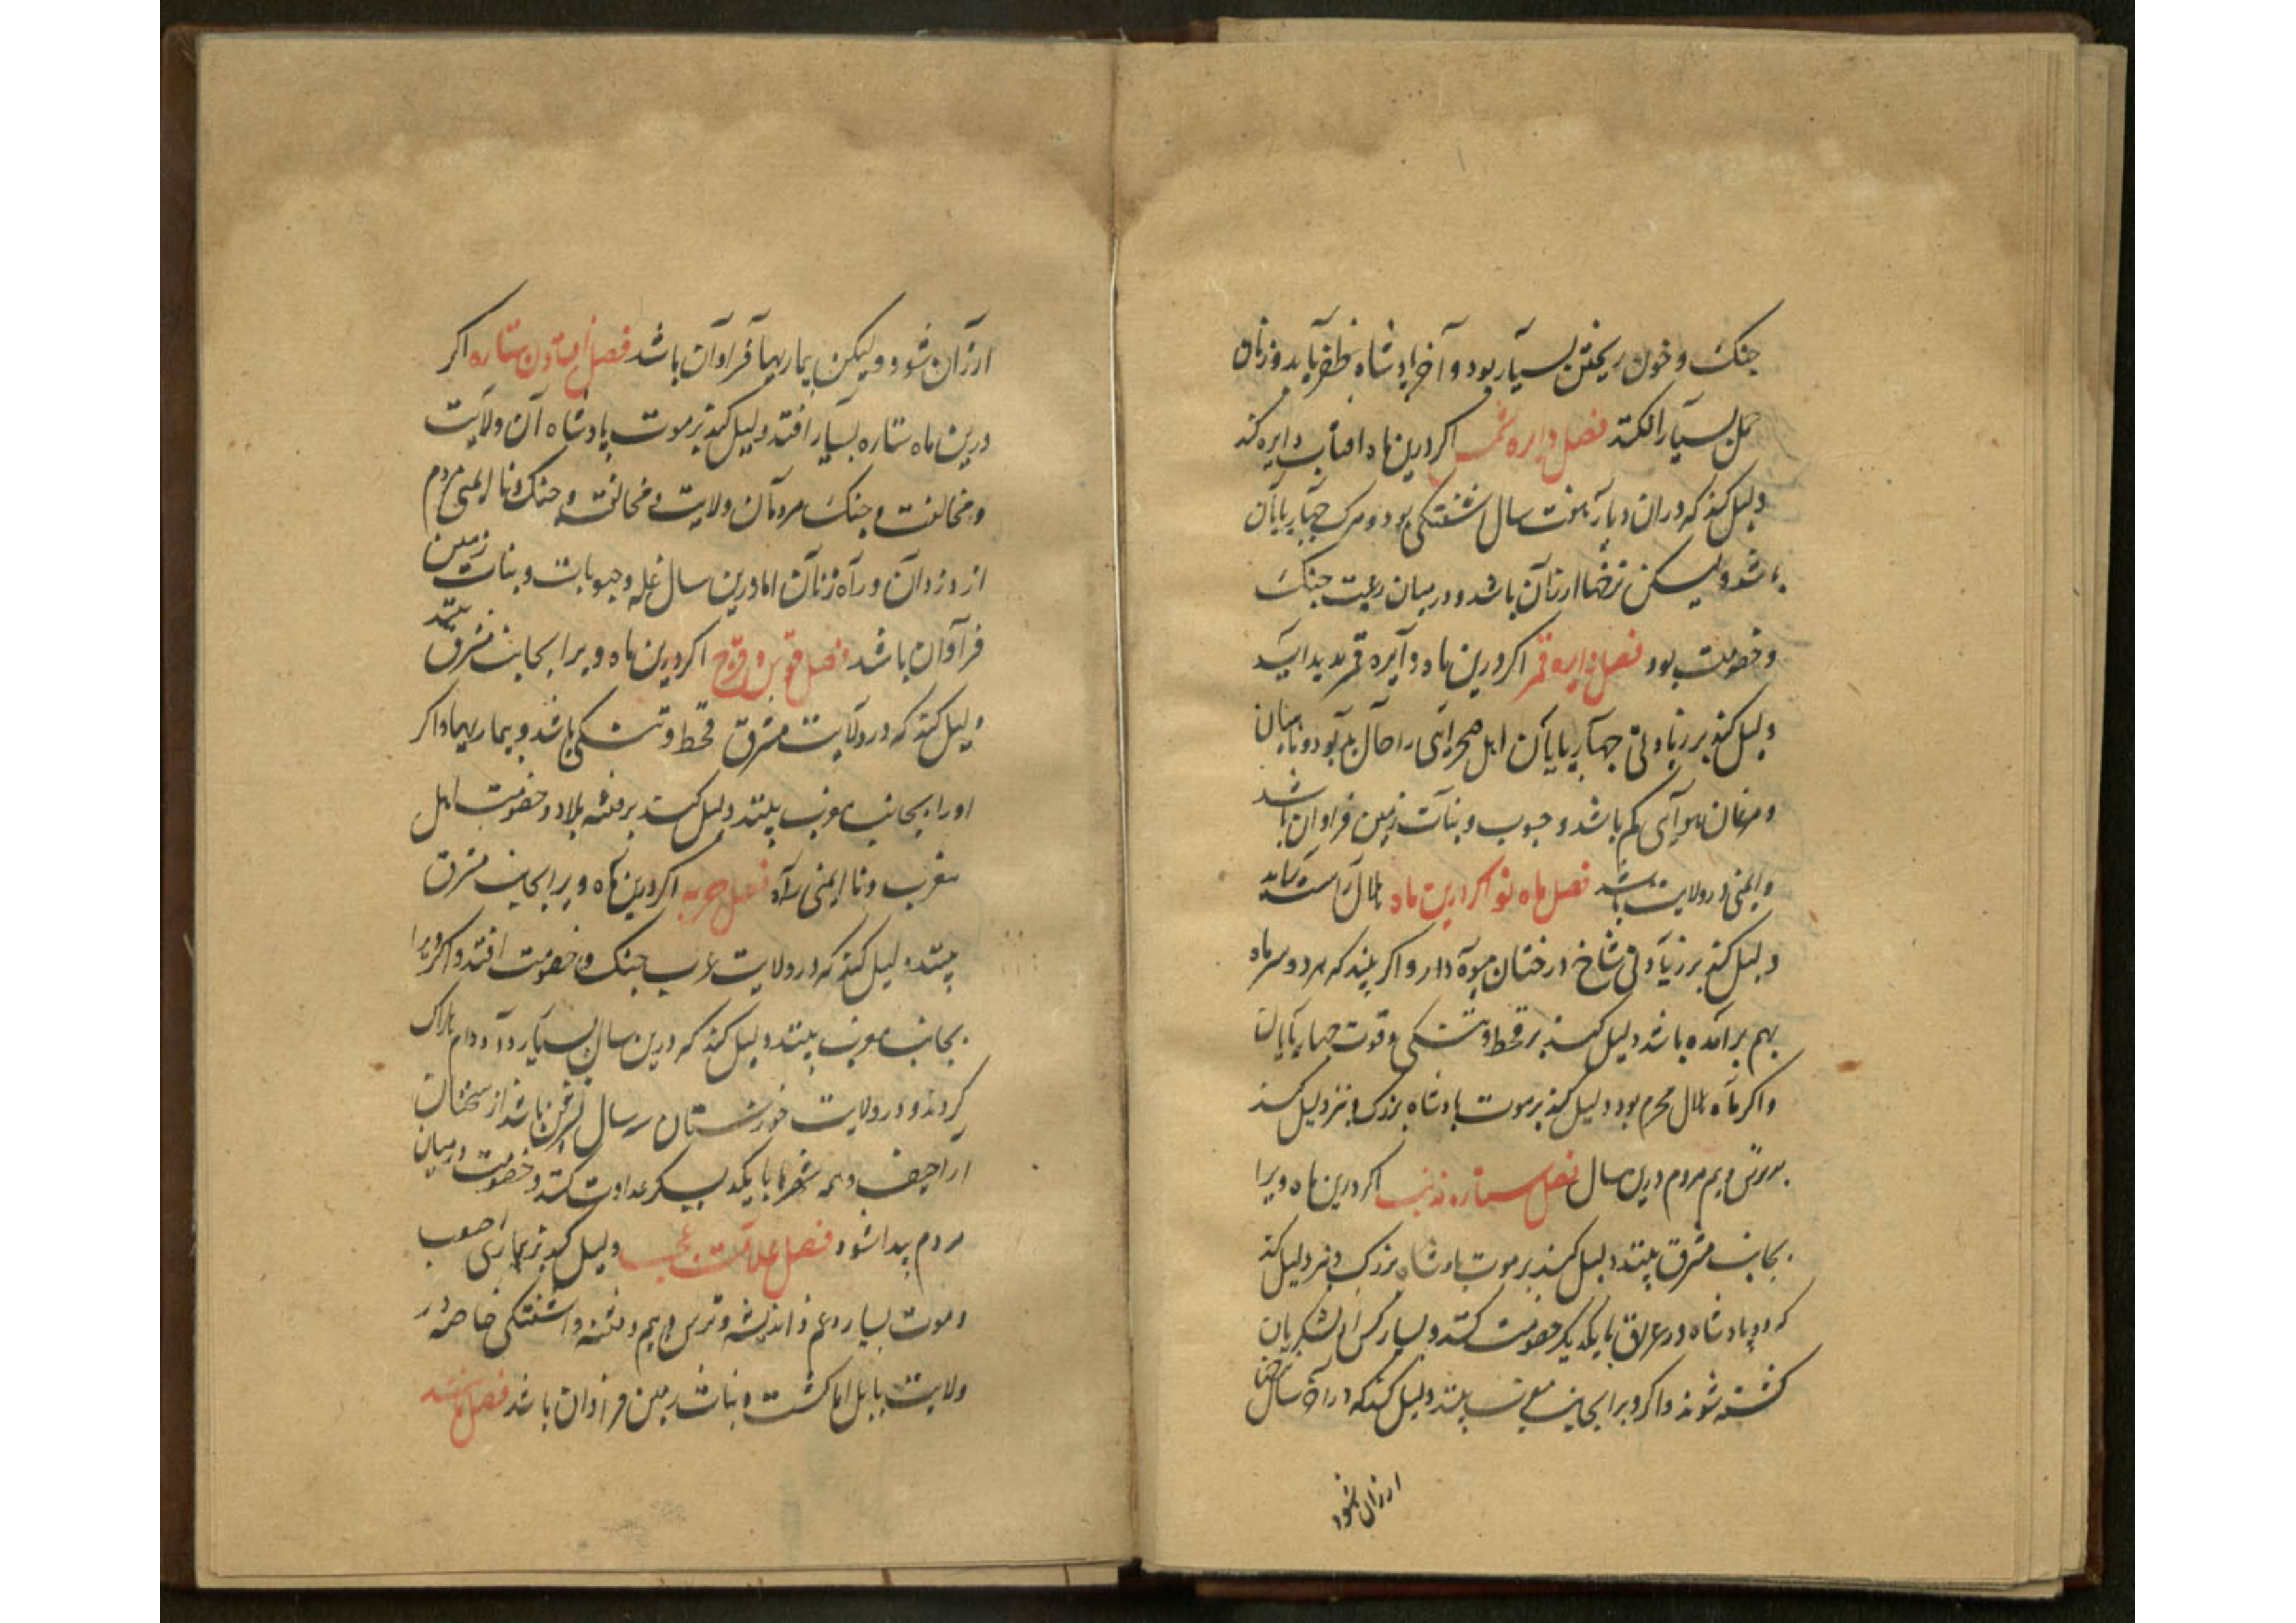 جنک و خون ریختن بسیار بود و آخر پادشاه ظفر یابد و زنان
حمل بسیار افکنند فصل دایره شمس اکر درین ماه افتاب دایره کند
دلیل کند که دران دیار سال اشفتکی بود و مرک چهارپایان
شود ولیکن نرخها ارزان باشد و در میان رعیت جنک
و خصومت بود فصل دایره قمر اکر درین ماه دایره قمر پدید آید
دلیل کند بر زیادتی چهارپایان اهل صحرایی را حال بد بود و ماهیان
و مرغان هوایی کم باشد و حبوب و نبات زمین فراوان باشد
و ایمنی در ولایت باشد فصل ماه نو اکر درین ماه هلال راست نماید
دلیل کند بر زیادتی شاخ درختان میوه دار و اکر بیند که هر دو سر ماه
بهم برآمده باشد دلیل کند بر قحط و تنکی و قوت چهارپایان
و اکر ماه هلال محرم بود دلیل کند بر موت پادشاه بزرک و نیز دلیل کند
بر ترس و بیم مردم درین سال فصل ستاره ذنب اکر درین ماه ویرا
بجانب مشرق بینند دلیل کند بر موت پادشاه بزرک و نیز دلیل کند
که دو پادشاه در عراق با یکدیکر خصومت کنند و بسیار کس از لشکریان
کشته شوند و اکر ویرا بجانب مغرب بینند دلیل کند که در آن سال نرخها
ارزان شود
ارزان شود ولیکن بیماریها فراوان باشد فصل افتادن ستاره اکر
درین ماه ستاره بسیار افتد دلیل کند بر موت پادشاه آن ولایت
و مخالفت و جنک مردمان ولایت و مخالفت و جنک و نا ایمنی مردم
از دزدان و راه زنان اما درین سال غله و حبوبات و نبات زمین
فراوان باشد فصل قوس و قزح اکر درین ماه ویرا بجانب مشرق بینند
دلیل کند که در ولایت مشرق قحط و تنکی باشد و بیماریها و اکر
اورا بجانب مغرب بینند دلیل کند بر فتنه بلاد و خصومت اهل
مغرب و نا ایمنی راه فصل حربه اکر درین ماه ویرا بجانب مشرق
بینند دلیل کند که در ولایت عرب جنک و خصومت افتد و اکر ویرا
بجانب مغرب بینند دلیل کند که درین سال بسیار دد و دام هلاک
کردند و در ولایت خوزستان سال باشد از سخنان
اراجیف و همه شهرها با یکدیکر عداوت کنند و خصومت در میان
مردم پیدا شود فصل علامت دلیل کند بر بیماری صعب
و موت بسیار و غم و اندیشه و ترس و بیم و فتنه و اشفتکی خاصه در
ولایت بابل اما کشت و نبات زمین فراوان باشد فصل